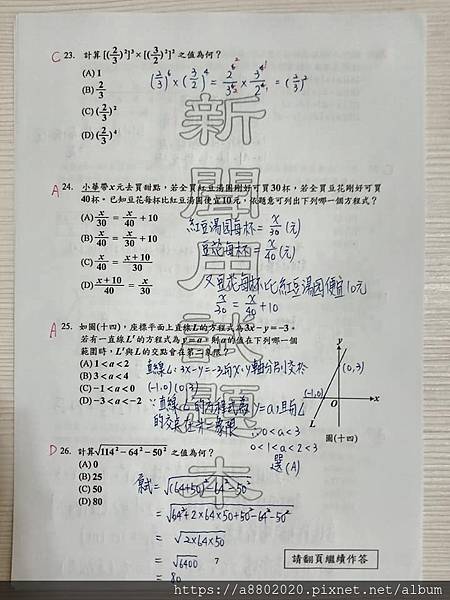 C 23. 計算[(2/3)²]³×[(3/2)²]² 之值為何？
(A) 1
(B) 2/3
(C) (2/3)²
(D) (2/3)⁴
(2/3)⁶ × (3/2)⁴ = 2⁶/3⁶ × 3⁴/2⁴ = (2/3)²
A 24. 小華帶x元去買甜點，若全買紅豆湯圓剛好可買30杯，若全買豆花剛好可買
40杯。已知豆花每杯比紅豆湯圓便宜10元，依題意可列出下列哪一個方程式？
(A) x/30 = x/40 + 10
(B) x/40 = x/30 + 10
(C) x/40 = x+10/30
(D) x+10/40 = x/30
紅豆湯圓每杯 = x/30 (元)
豆花每杯 = x/40 (元)
又豆花每杯比紅豆湯圓便宜10元
x/30 = x/40 + 10
A 25. 如圖(十四)，座標平面上直線L的方程式為3x－y=－3。
若有一直線L'的方程式為y=a，則a的值在下列哪一個
範圍時，L'與L的交點會在第二象限？
(A) 1<a<2
(B) 3<a<4
(C) －1<a<0
(D) －3<a<－2
直線L：3x－y=－3與x、y軸分別交於
(-1,0) (0,3)
∵直線L的方程式為y=a,且與L
的交點在第二象限
∴0<a<3
0<1<a<2<3
選(A)
y
L
(0,3)
(-1,0)
O
x
圖(十四)
D 26. 計算√114²－64²－50² 之值為何？
(A) 0
(B) 25
(C) 50
(D) 80
原式 = √(64+50)²－64²－50²
= √64²+2×64×50+50²－64²－50²
= √2×64×50
= √6400
= 80
7
請翻頁繼續作答
https://a8802020.pixnet.net/album